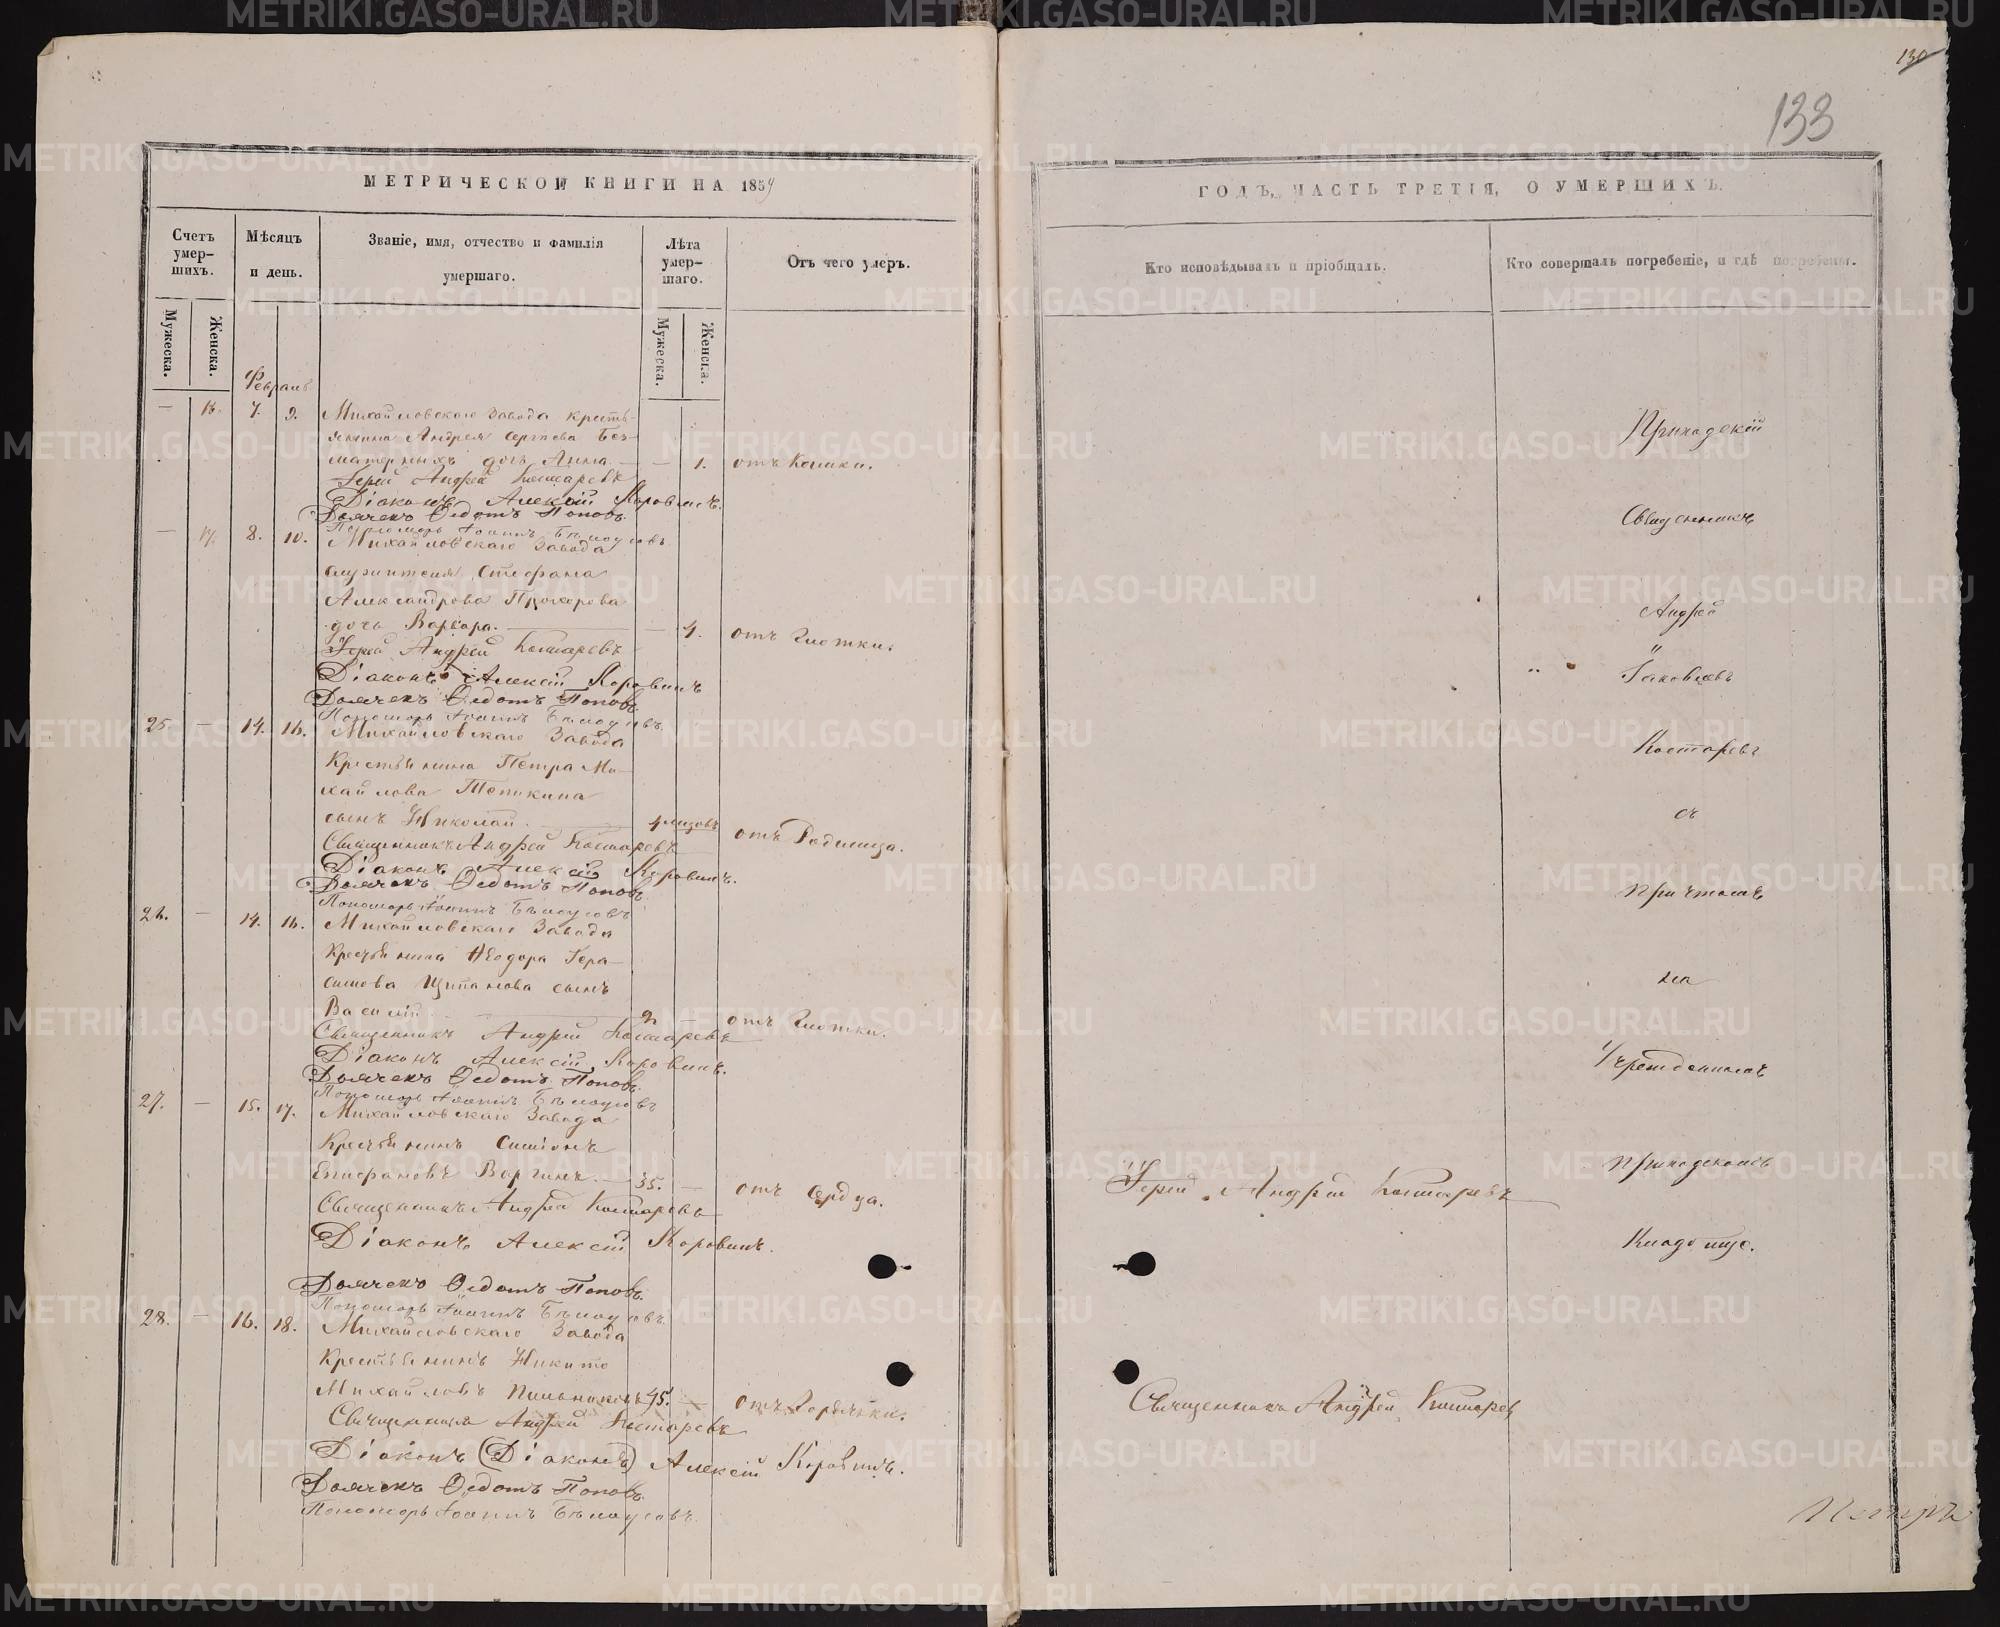 130
133
МЕТРИЧЕСКОЙ КНИГИ НА 1859
ГОДЪ, ЧАСТЬ ТРЕТІЯ, О УМЕРШИХЪ.
Счетъ умер-шихъ.
Мѣсяцъ и день.
Званіе, имя, отчество и фамилія умершаго.
Лѣта умер-шаго.
Отъ чего умеръ.
Кто исповѣдывалъ и пріобщалъ.
Кто совершалъ погребеніе, и гдѣ погребены.
Мужеска.
Женска.
Мужеска.
Женска.
Февраль
— 16. 7. 9. Михайловскаго Завода кресть-
янина Андрея Сергѣева Без-
матерныхъ дочь Анна — — 1. отъ Кашли.
Іерей Андрей Костаревъ
Діаконъ Алексій Коровинъ.
Дьячекъ Ѳедотъ Поповъ.
Пономарь Іоаннъ Бѣлоусовъ
— 17. 8. 10. Михайловскаго Завода
служителя Стефана
Александрова Прохорова
дочь Варвара. — — 4. отъ Глотки.
Іерей Андрей Костаревъ
Діаконъ Алексій Коровинъ
Дьячекъ Ѳедотъ Поповъ.
Пономарь Іоаннъ Бѣлоусовъ.
25. — 14. 16. Михайловскаго Завода
Крестьянина Петра Ми-
хайлова Тетикина
сынъ Николай. — 4 отъ Родимца.
Священникъ Андрей Костаревъ
Діаконъ Алексій Коровинъ.
Дьячекъ Ѳедотъ Поповъ.
Пономарь Іоаннъ Бѣлоусовъ
26. — 14. 16. Михайловскаго Завода
Крестьянина Ѳеодора Гера-
симова Щипанова сынъ
Василій — 2 — отъ Глотки.
Священникъ Андрей Костаревъ
Діаконъ Алексій Коровинъ.
Дьячекъ Ѳедотъ Поповъ.
Пономарь Іоаннъ Бѣлоусовъ
27. — 15. 17. Михайловскаго Завода
Крестьянинъ Симіонъ
Епифановъ Воргинъ — 35. — отъ Сердца.
Священникъ Андрей Костаревъ
Діаконъ Алексій Коровинъ.
Дьячекъ Ѳедотъ Поповъ.
Пономарь Іоаннъ Бѣлоусовъ.
28. — 16. 18. Михайловскаго Завода
Крестьянинъ Никита
Михайловъ 45. — отъ Горячки.
Священникъ Андрей Костаревъ
Діаконъ (Діаконъ) Алексій Коровинъ.
Дьячекъ Ѳедотъ Поповъ.
Пономарь Іоаннъ Бѣлоусовъ.
Іерей Андрей Костаревъ
Священникъ Андрей Костаревъ
Приходскій
Священникъ
Андрей
Іаковлевъ
Костаревъ
съ
причтомъ
на
Учрежденномъ
приходскомъ
Кладбище.
Петръ
METRIKI.GASO-URAL.RU